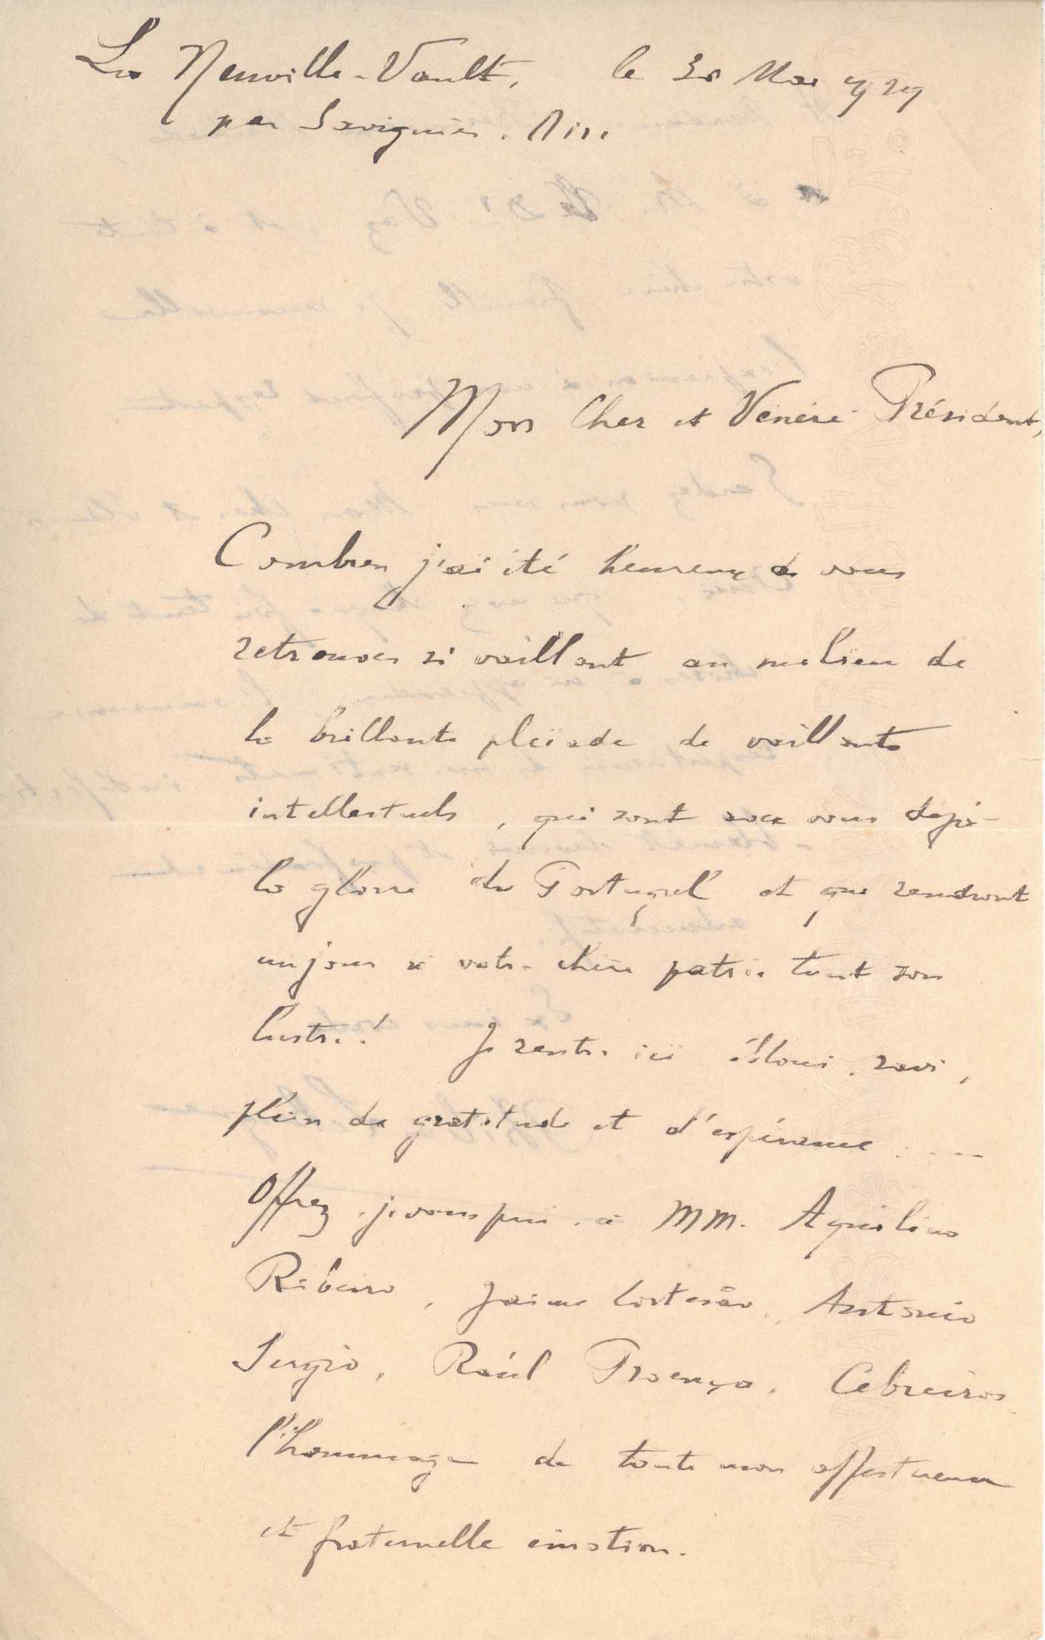 La Neuville-Vault, le 30 Mai 1929
par Savignies. Oise
Mon Cher et Vénéré Président,
Combien j'ai été heureux de vous
retrouver si vaillant au milieu de
la brillante pléiade de vaillants
intellectuels, qui sont avec vous déjà
la gloire du Portugal et qui rendront
un jour à votre chère patrie tout son
lustre! Je rentre ici ébloui, ravi,
plein de gratitude et d'espérance .....
Offrez, je vous prie, à MM. Aquilino
Ribeiro, Jaime Cortesão, Antonio
Sergio, Raúl Proença, Cebreiros
l'hommage de toute mon affectueuse
et fraternelle émotion.